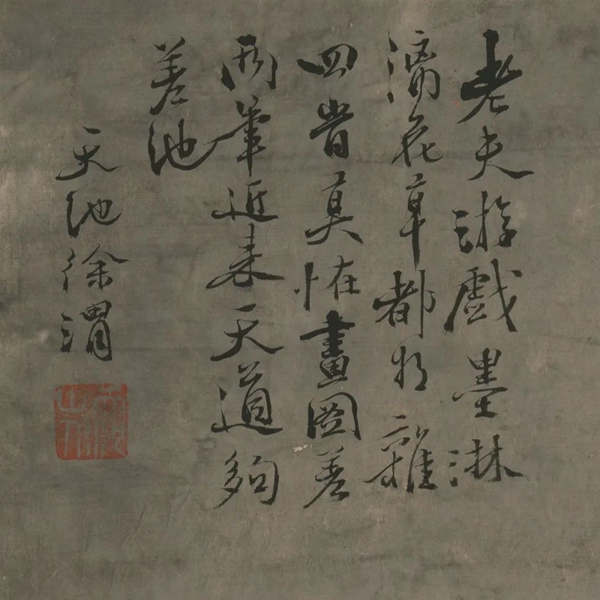 老夫游戲墨淋
漓花草都将雜
四旹莫恠畫圖差
兩筆近来天道夠
差池
天池徐渭